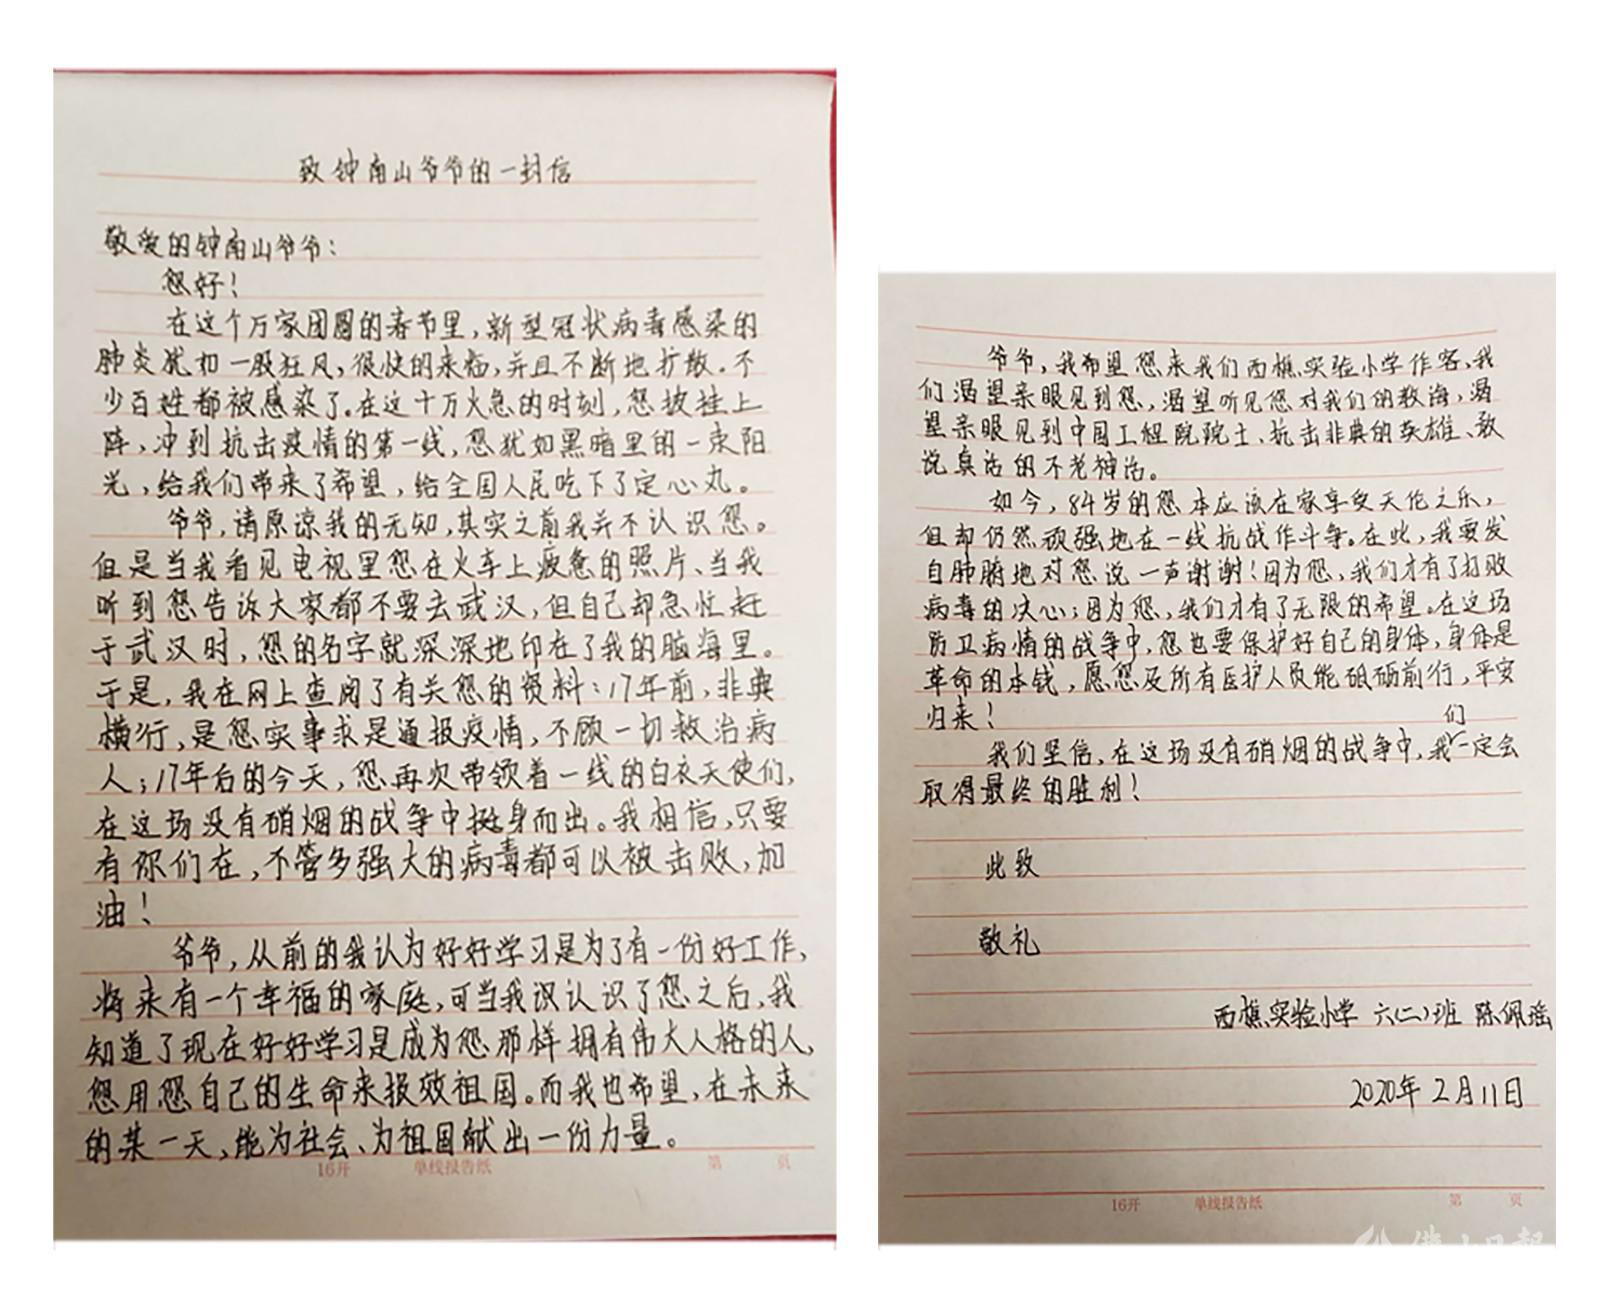 致钟南山爷爷的一封信
敬爱的钟南山爷爷：
您好！
在这个万家团圆的春节里，新型冠状病毒感染的
肺炎犹如一股狂风，很快的来临，并且不断地扩散。不
少百姓都被感染了。在这十万火急的时刻，您披挂上
阵，冲到抗击疫情的第一线，您犹如黑暗里的一束阳
光，给我们带来了希望，给全国人民吃下了定心丸。
爷爷，请原谅我的无知，其实之前我并不认识您。
但是当我看见电视里您在火车上疲惫的照片、当我
听到您告诉大家都不要去武汉，但自己却急忙赶
于武汉时，您的名字就深深地印在了我的脑海里。
于是，我在网上查阅了有关您的资料：17年前，非典
横行，是您实事求是通报疫情，不顾一切救治病
人；17年后的今天，您再次带领着一线的白衣天使们，
在这场没有硝烟的战争中挺身而出。我相信，只要
有你们在，不管多强大的病毒都可以被击败，加
油！
爷爷，从前的我认为好好学习是为了有一份好工作，
将来有一个幸福的家庭，可当我识认识了您之后，我
知道了现在好好学习是成为您那样拥有伟大人格的人，
您用您自己的生命来报效祖国。而我也希望，在未来
的某一天，能为社会、为祖国献出一份力量。
16开 单线报告纸 第 页
爷爷，我希望您来我们西樵实验小学作客，我
们渴望亲眼见到您，渴望听见您对我们的教诲，渴
望亲眼见到中国工程院院士、抗击非典的英雄、敢
说真话的不老神话。
如今，84岁的您本应该在家享受天伦之乐，
但却仍然顽强地在一线抗战作斗争。在此，我要发
自肺腑地对您说一声谢谢！因为您，我们才有了打败
病毒的决心；因为您，我们才有了无限的希望。在这场
防卫病情的战争中，您也要保护好自己的身体，身体是
革命的本钱，愿您及所有医护人员能砥砺前行，平安
归来！
我们坚信，在这场没有硝烟的战争中，我们一定会
取得最终的胜利！
此致
敬礼
西樵实验小学 六(二)班 陈佩瑶
2020年2月11日
16开 单线报告纸 第 页
佛山日報